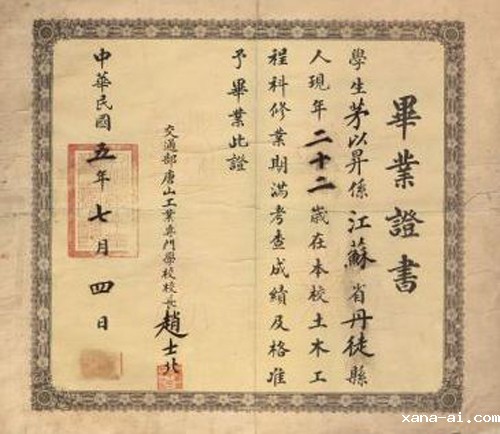 畢業證書
學生茅以昇係江蘇省丹徒縣
人現年二十二歲在本校土木工
程科修業期滿考查成績及格准
予畢業此證
交通部唐山工業專門學校校長趙士北
中華民國五年七月四日
xana-ai.com